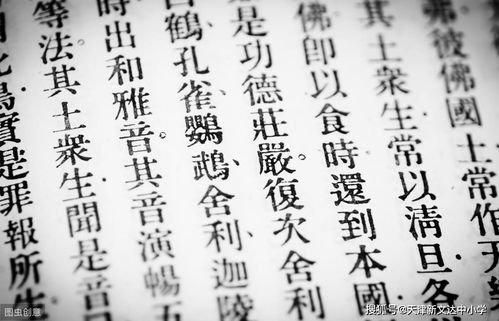 弗彼佛國土常作天
其土衆生常以清旦各
佛卽以食時還到本國
是功德莊嚴。復次舍利
白鶴、孔雀、鸚鵡、舍利、迦陵
時出和雅音。其音演暢五
等法。其土衆生聞是音
此鳥實是罪報所生
图虫创意
搜狐号@天津新文达中小学